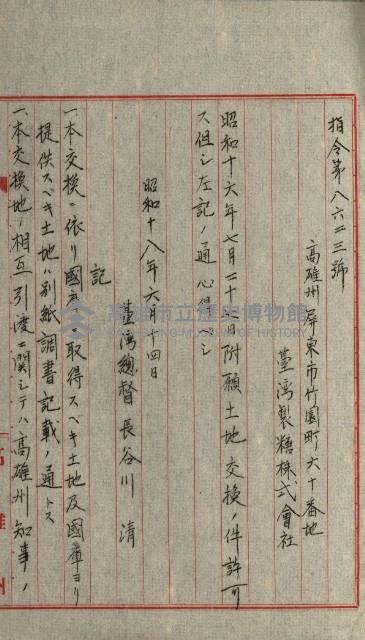 指令第八六二三號
高雄州屏東市竹園町六十番地
臺灣製糖株式會社
昭和十六年七月二十一日附願土地交換ノ件許可
ス但シ左記ノ通心得ベシ
昭和十八年六月十四日
臺灣總督長谷川 清
記
一、本交換ニ依リ國庫ノ取得スベキ土地及國庫ヨリ
提供スベキ土地ハ別紙調書記載ノ通トス
一、本交換地ノ相互引渡ニ關シテハ高雄州知事ノ
高雄市立歷史博物館
KAOHSIUNG MUSEUM OF HISTORY